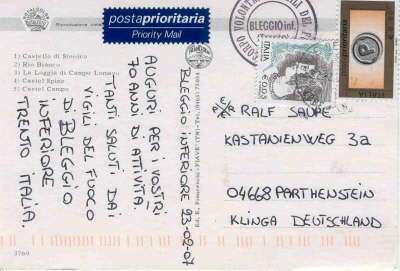 postaprioritaria
Priority Mail
BLEGGIO inf.
1) Castello di Stenico
2) Rio Bianco
3) Le Loggia di Campo Lomaso
4) Castel Spine
5) Castel Campo
BLEGGIO INFERIORE 23-02-07
AUGURI PER I VOSTRI
70 ANNI DI ATTIVITA.
TANTI SALUTI DAI
VIGILI DEL FUOCO
DI BLEGGIO
INFERIORE
TRENTO ITALIA.
3769
ITALIA
prioritaria
P
ITALIA
RALF SAUPE
KASTANIENWEG 3a
04668 PARTHENSTEIN
KLINGA DEUTSCHLAND